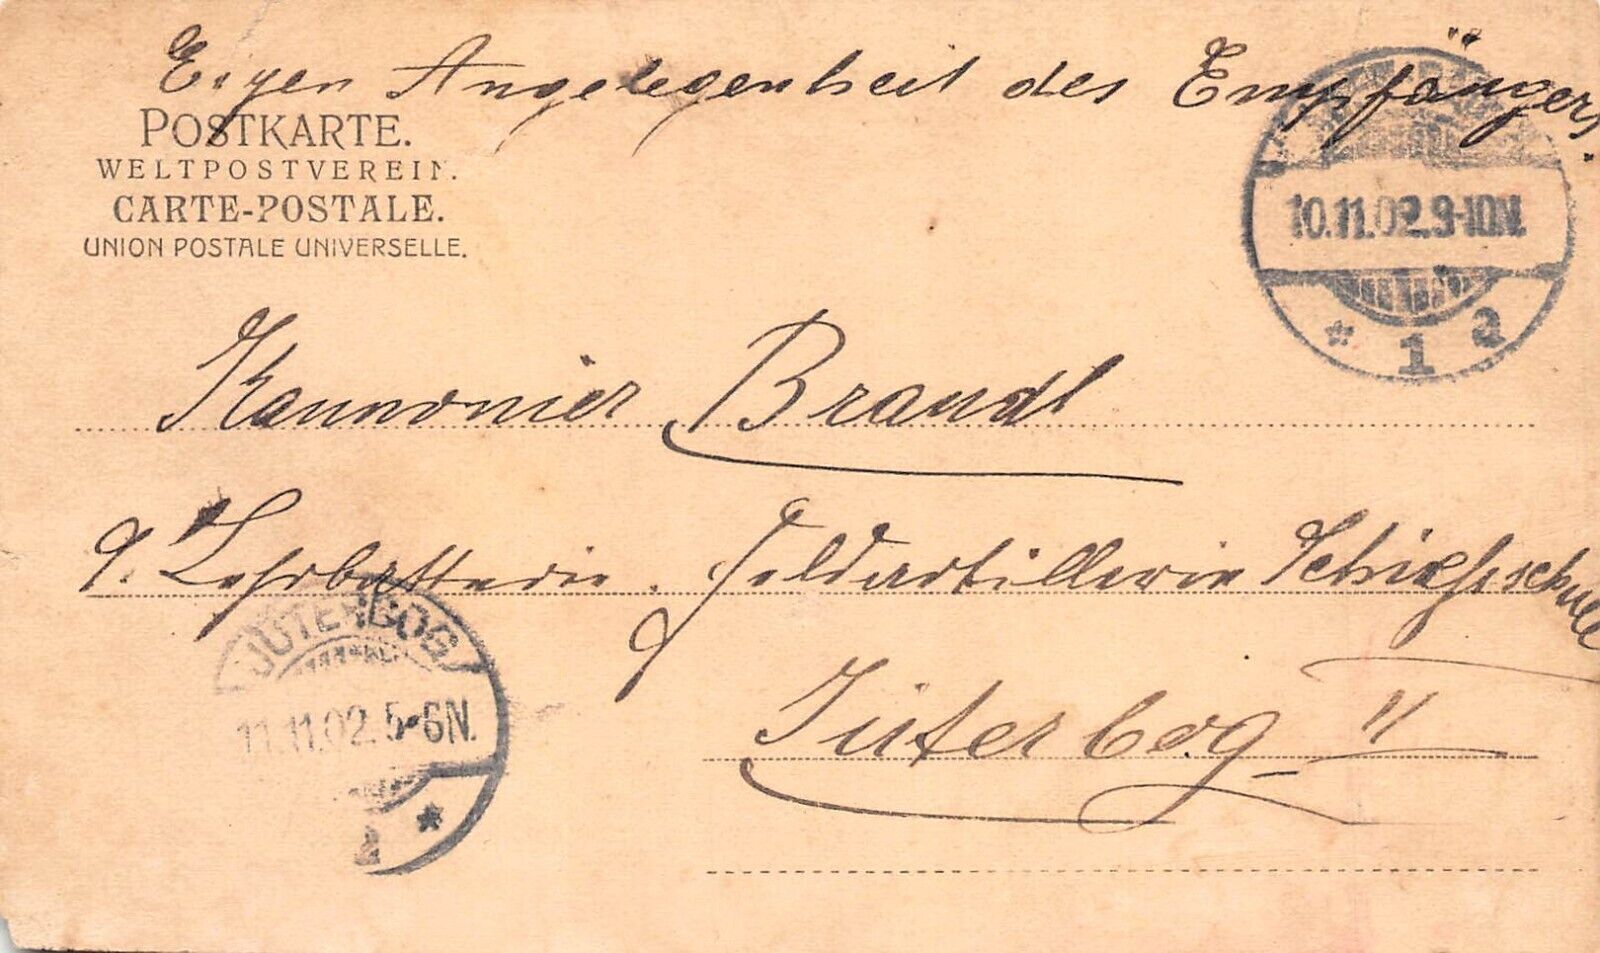 Eigen Angelegenheit des Empfängers.
POSTKARTE.
WELTPOSTVEREIN.
CARTE-POSTALE.
UNION POSTALE UNIVERSELLE.
10.11.02.9-10N.
* 1 a
Kannonier Brandl
Lehrbatterie. Feldartillerie Schießschule
JÜTERBOG
11.11.02.5-6N.
*
Jüterbog II